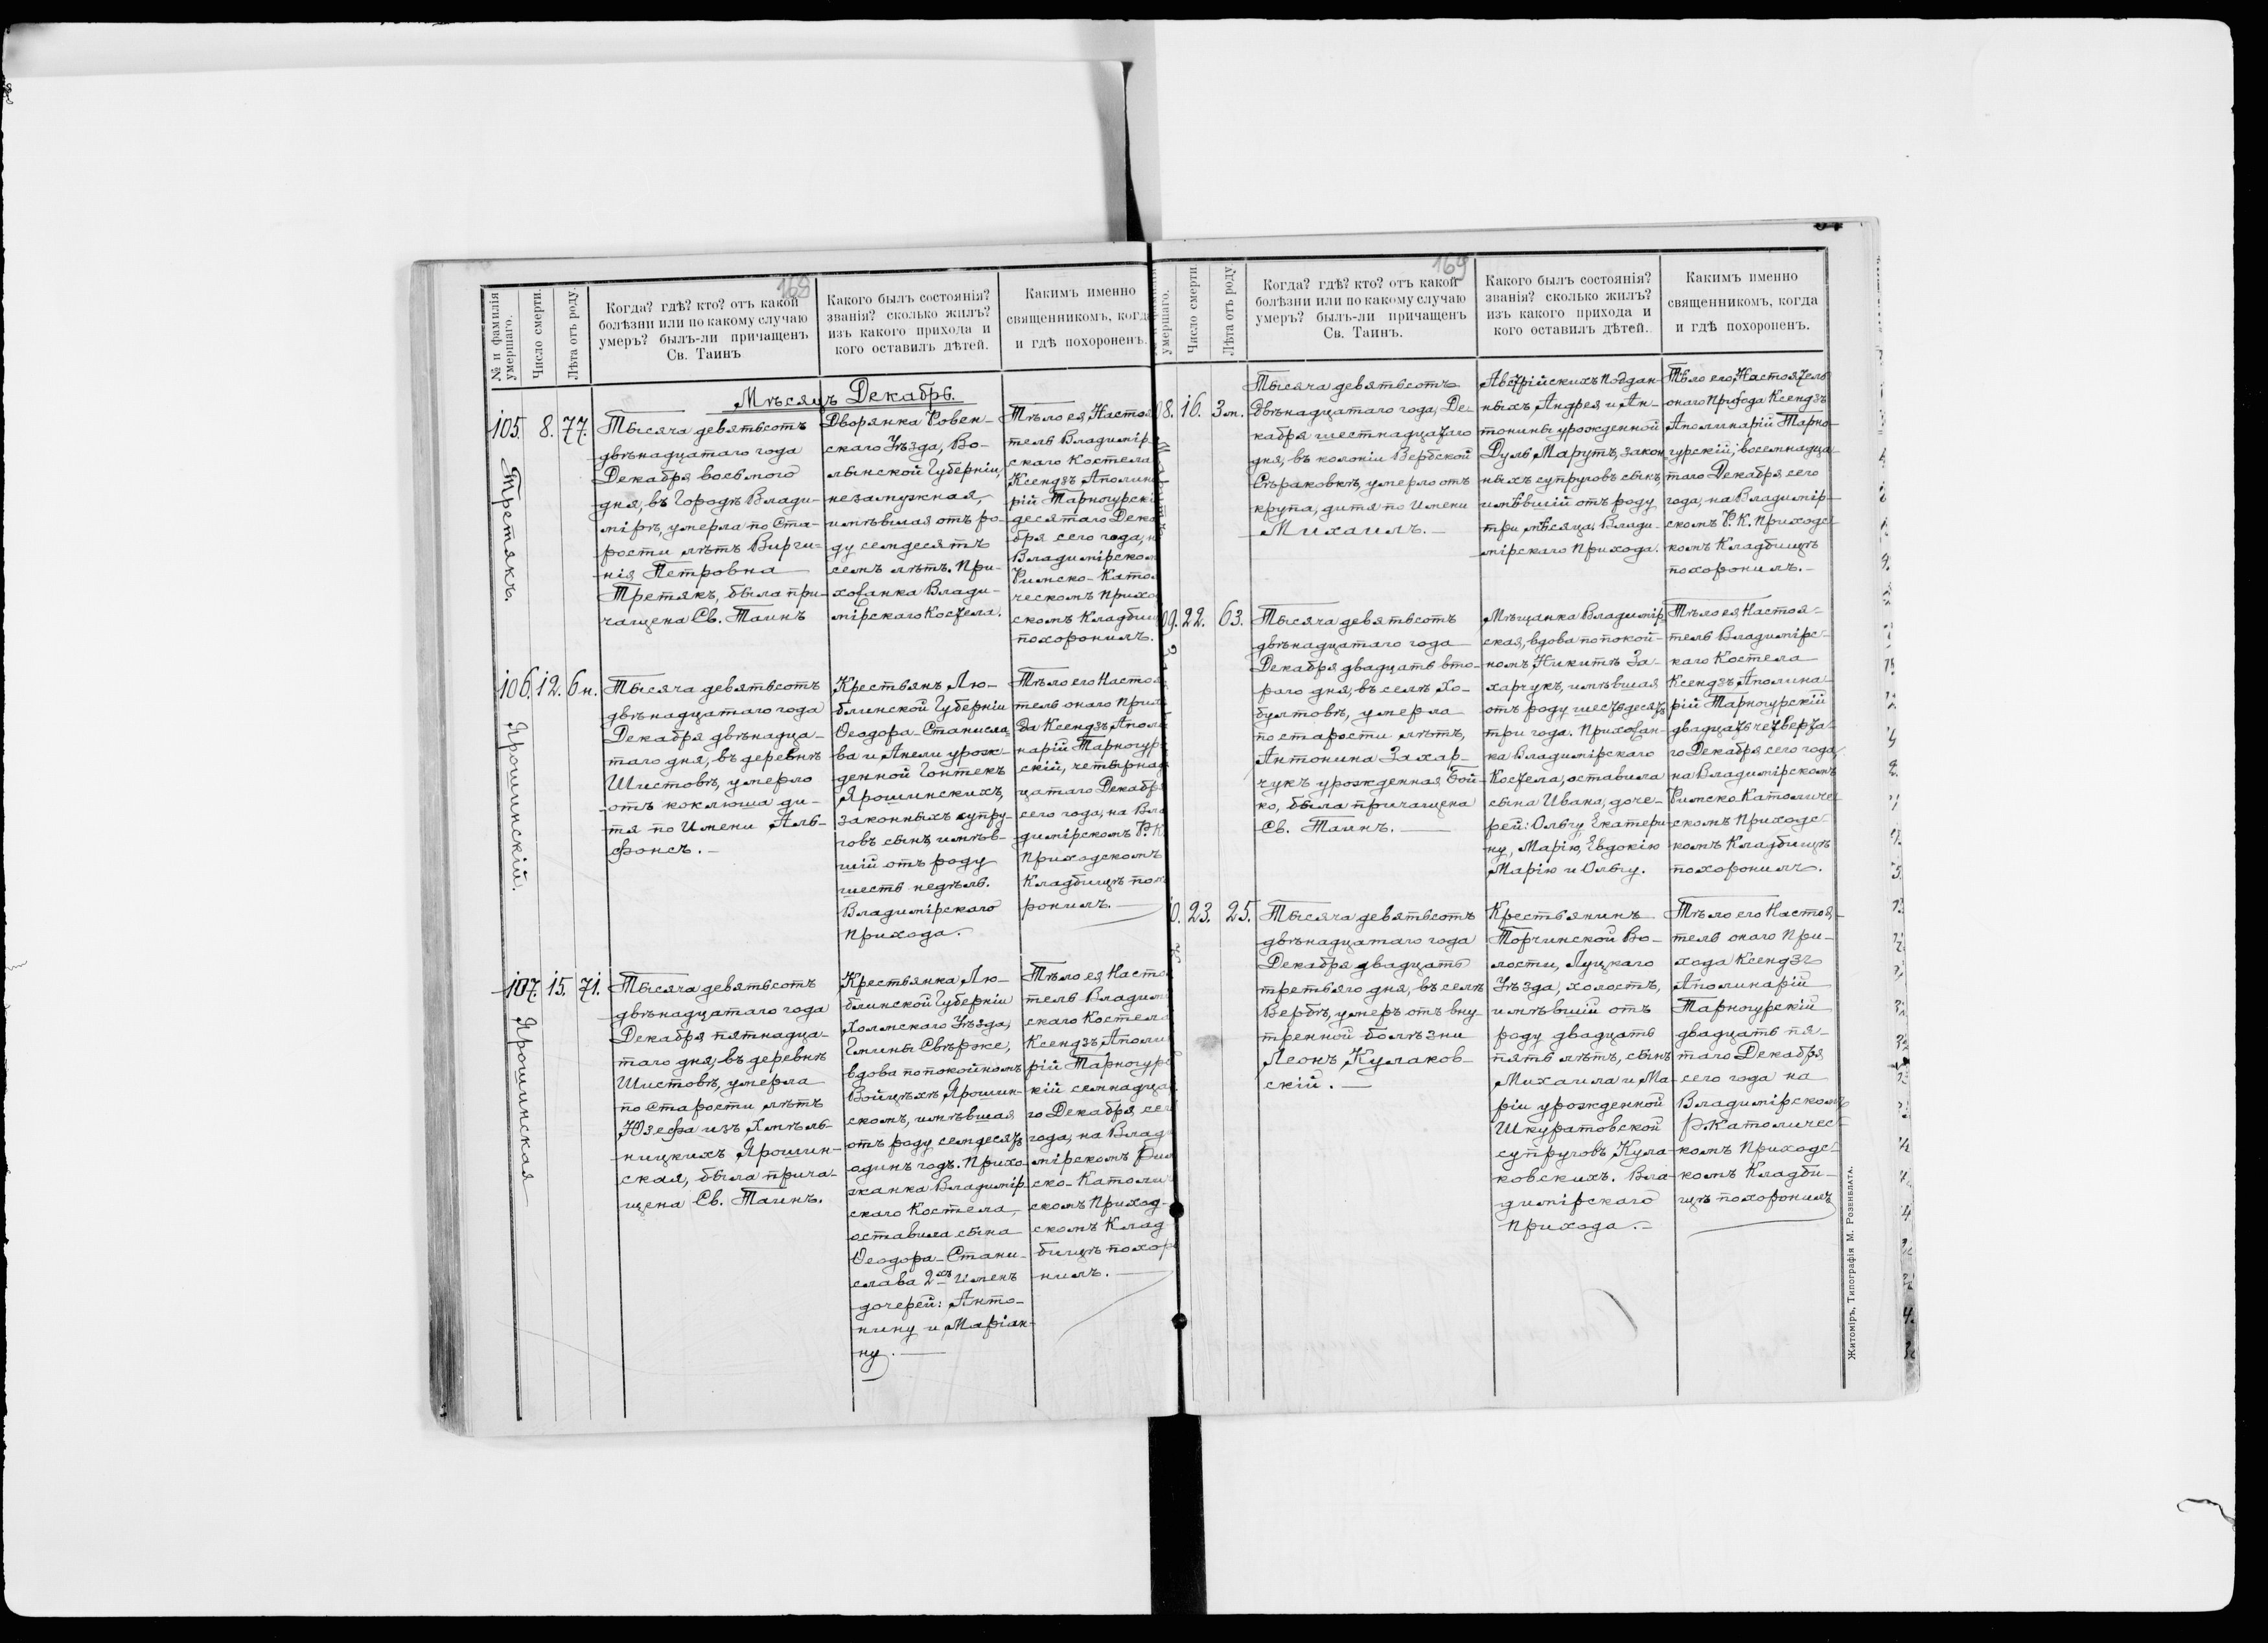 168
№ и фамилія
умершаго.
Число смерти.
Лѣта отъ роду.
Когда? гдѣ? кто? отъ какой
болѣзни или по какому случаю
умеръ? былъ-ли причащенъ
Св. Таинъ
Какого былъ состоянія?
званія? сколько жилъ?
изъ какого прихода и
кого оставилъ дѣтей.
Какимъ именно
священникомъ, когд
и гдѣ похороненъ.
Мѣсяцъ Декабрь.
105.
Третякъ.
8.
77.
Тысяча девятьсотъ
двѣнадцатаго года
Декабря восьмого
дня, въ Городѣ Влади-
мірѣ, умерла по Ста-
рости лѣтъ Вирги-
нія Петровна
Третякъ, была при-
чащена Св. Таинъ
Дворянка Ровен-
скаго Уѣзда, Во-
лынской Губерніи,
незамужная,
имѣвшая отъ ро-
ду семдесятъ
семъ лѣтъ. При-
хожанка Влади-
мірскаго Костела.
Тѣло ея, Настоя
тель Владимір-
скаго Костела
Ксендзъ Аполин
рій Тарногурскі
десятаго Дека
бря сего года, н
Владимірском
Римско-Като
ческомъ прихо
скомъ Кладби
похоронилъ.
106.
Ярошинскій.
12.
6 н.
Тысяча девятьсотъ
двѣнадцатаго года
Декабря двѣнадца-
таго дня, въ деревнѣ
Шистовѣ, умерло
отъ коклюша ди-
тя по Имени Аль-
фонсъ.
Крестьянъ Лю-
блинской Губерніи
Ѳеодора-Станисла-
ва и Анели урож-
денной Гонтекъ
Ярошинскихъ,
законныхъ супру-
говъ сынъ, имѣв-
шій отъ роду
шесть недѣль.
Владимірскаго
прихода.
Тѣло его Настоя
тель онаго прих
да Ксендзъ Апол
нарій Тарногур
скій, четырнад
цатаго Декабр
сего года, на Вла
димірскомъ Р.К
приходскомъ
Кладбищѣ пох
ронилъ.
107.
Ярошинская
15.
71.
Тысяча девятьсотъ
двѣнадцатаго года
Декабря пятнадца-
таго дня, въ деревнѣ
Шистовѣ, умерла
по Старости лѣтъ
Юзефа изъ Хмѣль-
ницкихъ Ярошин-
ская, была прича-
щена Св. Таинъ.
Крестьянка Лю-
блинской Губерніи
Холмскаго Уѣзда,
Гмины Свѣрже,
вдова по покойномъ
Войцѣхѣ Ярошин-
скомъ, имѣвшая
отъ роду семдесятъ
одинъ годъ. Прихо-
жанка Владимір-
скаго Костела
оставила сына
Ѳеодора-Стани-
слава 2хъ Именъ
дочерей: Анто-
нину и Маріан-
ну.
Тѣло ея, Насто
тель Владим
скаго Костела
Ксендзъ Аполи
рій Тарногурс
кій семнадца
го Декабря, се
года, на Влад
мірскомъ Рим
ско-Католи
скомъ Приход-
скомъ Клад
бищѣ похор
нилъ.
169
умершаго.
Число смерти.
Лѣта отъ роду.
Когда? гдѣ? кто? отъ какой
болѣзни или по какому случаю
умеръ? былъ-ли причащенъ
Св. Таинъ.
Какого былъ состоянія?
званія? сколько жилъ?
изъ какого прихода и
кого оставилъ дѣтей.
Какимъ именно
священникомъ, когда
и гдѣ похороненъ.
08.
16.
3 м.
Тысяча девятьсотъ
двѣнадцатаго года, Де-
кабря шестнадцатаго
дня, въ колоніи Вербской
Сѣраковкѣ, умерло отъ
крупа, дитя по Имени
Михаилъ.
Австрійскихъ подан-
ныхъ Андрея и Ан-
тонины урожденной
Дуль, Марутъ, закон
ныхъ супруговъ сынъ,
имѣвшій отъ роду
три мѣсяца, Влади-
мірскаго Прихода.
Тѣло его, Настоятель
онаго прихода Ксендзъ
Аполинарій Тарно-
гурскій, восемнадца-
таго Декабря, сего
года, на Владимір-
скомъ Р. К. приходс-
комъ Кладбищѣ
похоронилъ.
09.
22.
63.
Тысяча девятьсотъ
двѣнадцатаго года
Декабря двадцать вто-
раго дня, въ селѣ Хо-
бултовѣ, умерла
по старости лѣтъ,
Антонина Захар-
чукъ урожденная Бой-
ко, была причащена
Св. Таинъ.
Мѣщанка Владимір
ская, вдова по покой-
номъ Никитѣ За-
харчукъ, имѣвшая
отъ роду шестьдесятъ
три года. Прихожан-
ка Владимірскаго
Костела, оставила
сына Ивана, доче-
рей: Ольгу, Екатери-
ну, Марію, Евдокію
Марію и Ольгу.
Тѣло ея, Настоя-
тель Владимірс-
каго Костела
Ксендзъ Аполина-
рій Тарногурскій
двадцать четверта-
го Декабря сего года,
на Владимірскомъ
Римско Католиче-
скомъ Приходс-
комъ Кладбищѣ
похоронилъ.
0.
23.
25.
Тысяча девятьсотъ
двѣнадцатаго года
Декабря двадцать
третьяго дня, въ селѣ
Вербѣ, умеръ отъ вну
тренной болѣзни
Леонъ Кулаков-
скій.
Крестьянинъ
Торчинской Во-
лости, Луцкаго
Уѣзда, холостъ,
имѣвшій отъ
роду двадцать
пять лѣтъ, сынъ
Михаила и Ма-
ріи урожденной
Шкуратовской
супруговъ Кула-
ковскихъ. Вла-
димірскаго
Прихода.
Тѣло его Настоя-
тель онаго При-
хода Ксендзъ
Аполинарій
Тарногурскій
двадцать пя-
таго Декабря
сего года на
Владимірскомъ
Р.Католичес-
комъ Приходс-
комъ Кладби-
щѣ похоронилъ
Житоміръ, Типографія М. Розенблата.